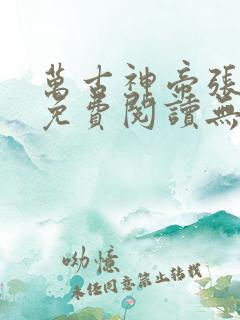 萬古神帝張
免費閱讀無
呦憶
未经同意禁止转载